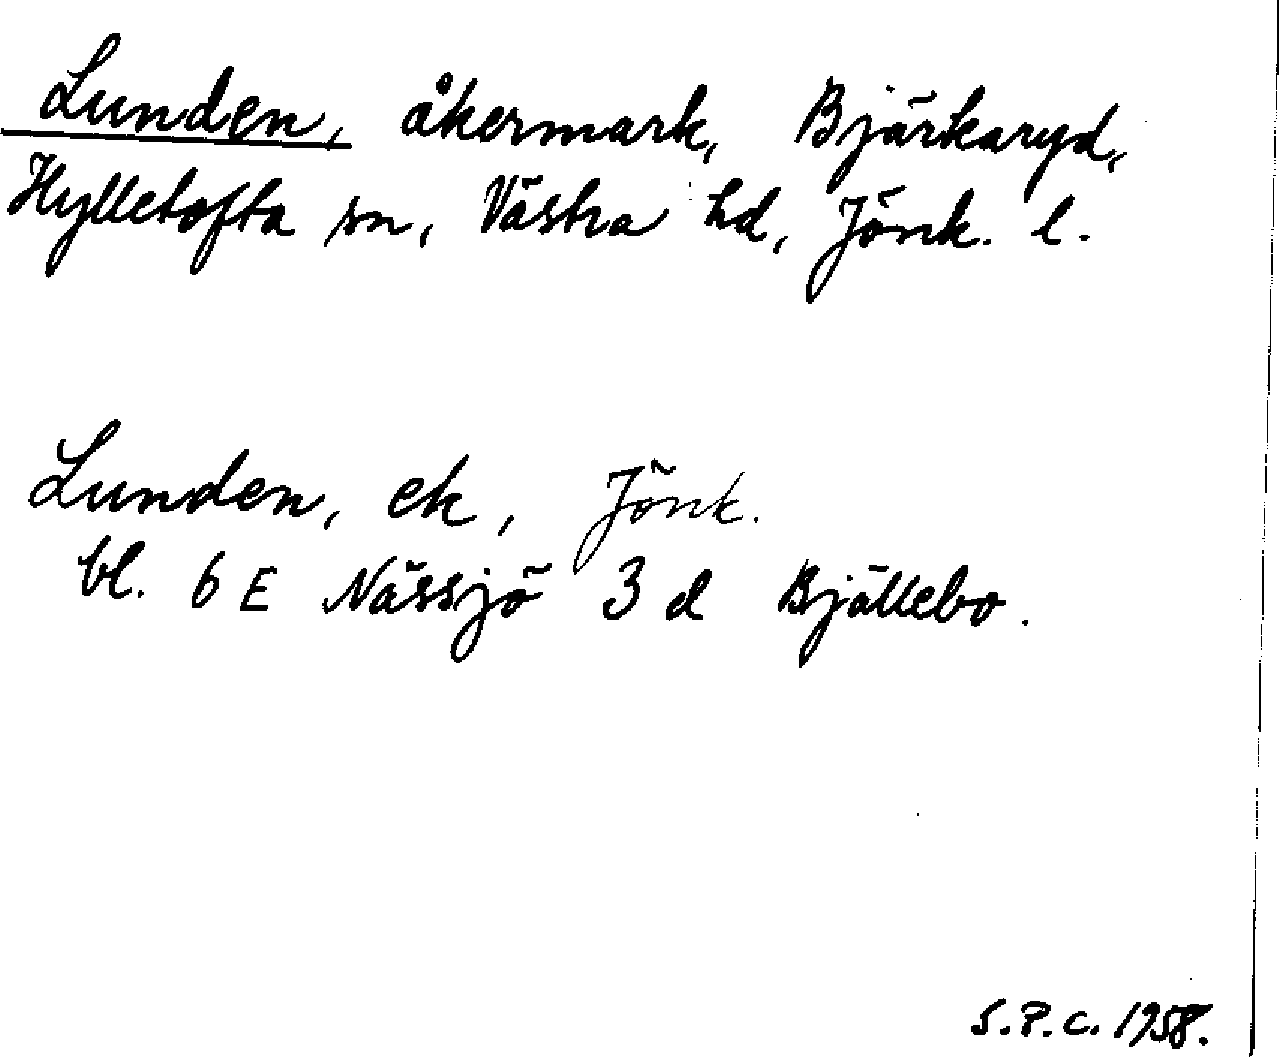 Lunden, åkermark, Bjärkaryd,
Hylletofta sn, Västra hd, Jönk. l.
Lunden, ek, Jönk.
bl. 6 E Nässjö 3 d Bjällebo.
S.P.C. 1958.